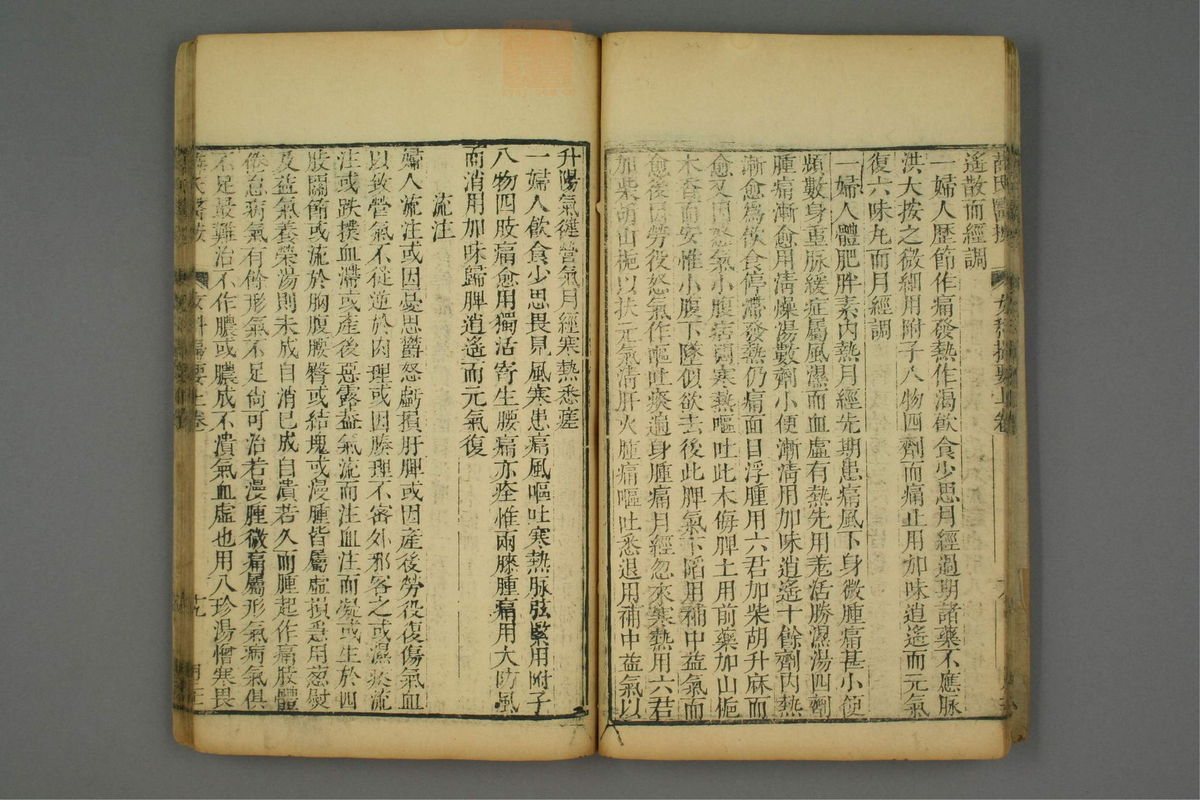 遙散而經調
一婦人歷節作痛發熱作渴飲食少思月經過期諸藥不應脉
洪大按之微細用附子八物四劑而痛止用加味逍遙而元氣
復六味丸而月經調
一婦人體肥胖素內熱月經先期患痛風下身微腫痛甚小便
頻數身重脉緩症屬風濕而血虛有熱先用羌活勝濕湯四劑
腫痛漸愈用清燥湯數劑小便漸清用加味逍遙十餘劑內熱
漸愈為飲食停滯發熱仍痛面目浮腫用六君加柴胡升麻而
愈又因怒氣小腹痞悶寒熱嘔吐此木侮脾土用前藥加山梔
木香而安惟小腹下墜似欲去後此脾氣下陷用補中益氣而
愈後因勞役怒氣作嘔吐痰遍身腫痛月經忽來寒熱用六君
加柴胡山梔以扶元氣清肝火腫痛嘔吐悉退用補中益氣以
升陽氣健營氣月經寒熱悉瘥
一婦人飲食少思畏見風寒患痛風嘔吐寒熱脉弦緊用附子
八物四肢痛愈用獨活寄生腰痛亦痊惟兩膝腫痛用大防風
而消用加味歸脾逍遙而元氣復
流注
婦人流注或因憂思鬱怒虧損肝脾或因產後勞役復傷氣血
以致營氣不從逆於肉理或因腠理不密外邪客之或濕痰流
注或跌撲血滯或產後惡露蓋氣流而注血注而凝或生於四
肢關節或流於胸腹腰臀或結塊或漫腫皆屬虛損急用葱熨
及益氣養榮湯則未成自消已成自潰若久而腫起作痛肢體
倦怠病氣有餘形氣不足尚可治若漫腫微痛屬形氣病氣俱
不足最難治不作膿或膿成不潰氣血虛也用八珍湯憎寒畏
女科撮要上卷